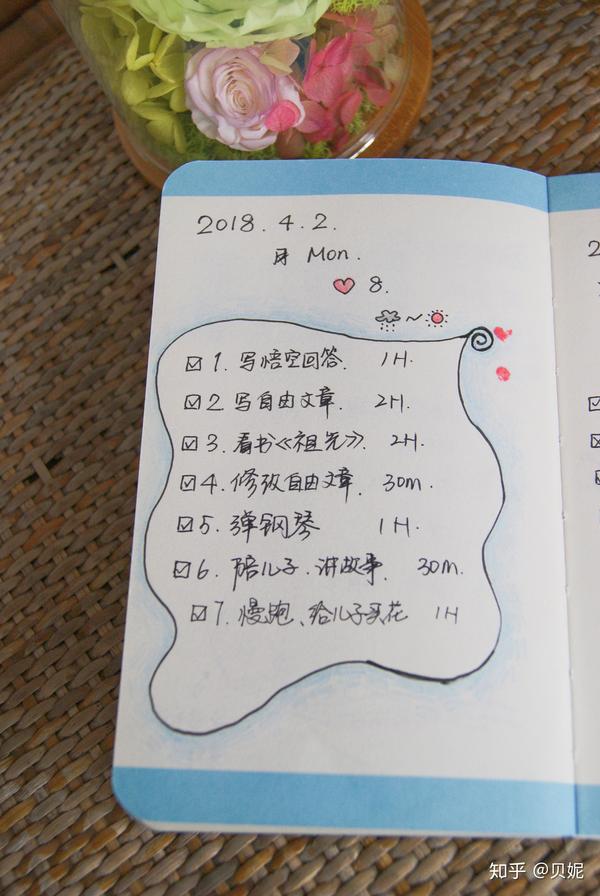 2018.4.2.
Mon.
8.
~
☑ 1. 写悟空回答. 1H.
☑ 2. 写自由文章. 2H.
☑ 3. 看书《祖先》. 2H.
☑ 4. 修改自由文章. 30m.
☑ 5. 弹钢琴 1H.
☑ 6. 陪儿子.讲故事. 30m.
☑ 7. 慢跑、给儿子买花 1H
2
知乎 @贝妮